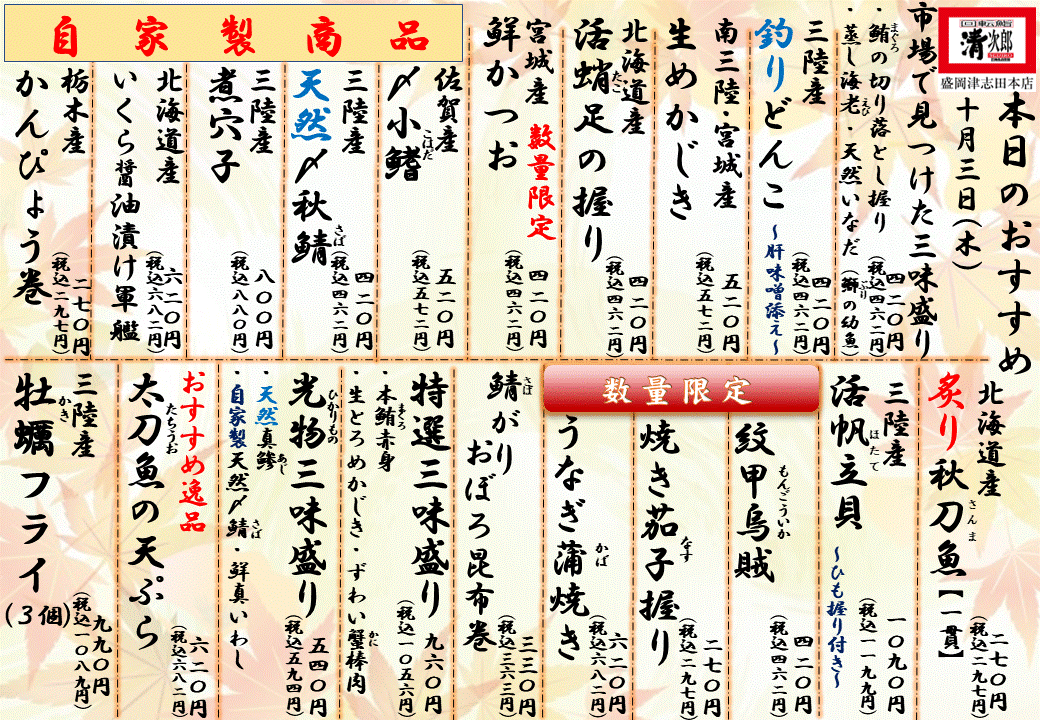 回転鮨
清次郎
SEIJIRO
盛岡津志田本店
本日のおすすめ
十月三日(木)
市場で見つけた三味盛り
・鮪の切り落とし握り
まぐろ
・蒸し海老・天然いなだ(鰤の幼魚)
えび
ぶり
四二〇円
(税込四六二円)
三陸産
釣りどんこ
~肝味噌添え~
四二〇円
(税込四六二円)
南三陸・宮城産
生めかじき
五二〇円
(税込五七二円)
北海道産
活蛸足の握り
たこ
四二〇円
(税込四六二円)
宮城産
数量限定
鮮かつお
四二〇円
(税込四六二円)
自家製商品
佐賀産
〆小鰭
こはだ
五二〇円
(税込五七二円)
三陸産
天然〆秋鯖
さば
四二〇円
(税込四六二円)
三陸産
煮穴子
八〇〇円
(税込八八〇円)
北海道産
いくら醤油漬け軍艦
六二〇円
(税込六八二円)
栃木産
かんぴょう巻
二七〇円
(税込二九七円)
北海道産
炙り秋刀魚【一貫】
さんま
二七〇円
(税込二九七円)
三陸産
活帆立貝
ほたて
~ひも握り付き~
一〇九〇円
(税込一一九九円)
数量限定
紋甲烏賊
もんごういか
四二〇円
(税込四六二円)
焼き茄子握り
なす
二七〇円
(税込二九七円)
うなぎ蒲焼き
かば
六二〇円
(税込六八二円)
鯖がり
さば
おぼろ昆布巻
三三〇円
(税込三六三円)
特選三味盛り
・本鮪赤身
まぐろ
・生とろめかじき・ずわい蟹棒肉
かに
九六〇円
(税込一〇五六円)
光物三味盛り
ひかりもの
・天然真鯵
あじ
・自家製天然〆鯖・鮮真いわし
さば
五四〇円
(税込五九四円)
おすすめ逸品
太刀魚の天ぷら
たちうお
六二〇円
(税込六八二円)
三陸産
牡蠣フライ(3個)
かき
九九〇円
(税込一〇八九円)